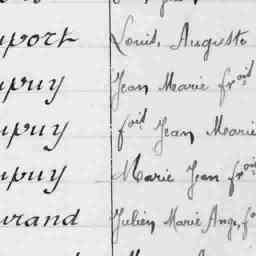 uport Louis, Auguste
upuy Jean Marie frçois
upuy fçois Jean Marie
upuy Marie Jean frçois
urand Julien Marie Ang. f